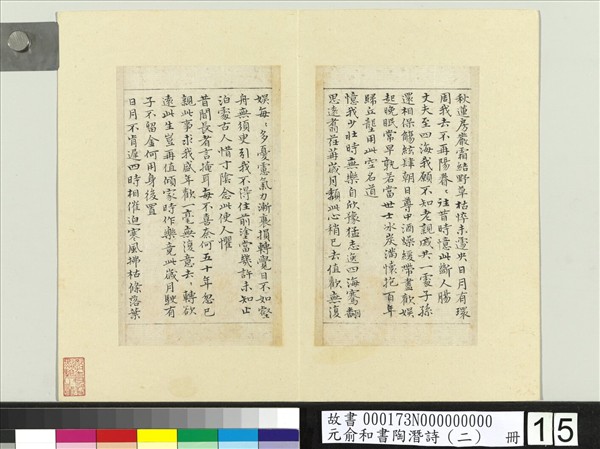 秋蓮房嚴霜結野草枯悴未遽央日月有環
周我去不再陽眷〻往昔時憶此斷人腸
丈夫至四海我願不知老親戚共一處子孫
還相保觴絃肆朝日尊中酒燥緩帶盡歡娛
起晚眠常早孰若當世士冰炭滿懷抱百年
歸丘壟用此空名道
憶我少壯時無樂自欣豫猛志逸四海騫翮
思遠翥荏苒歲月頹此心稍已去值歡無復
娛每〻多憂慮氣力漸衰損轉覺日不如壑
舟無須臾引我不得住前塗當幾許未知止
泊處古人惜寸陰念此使人懼
昔聞長者言掩耳每不喜奈何五十年忽已
親此事求我盛年歡一毫無復意去〻轉欲
遠此生豈再值傾家時作樂竟此歲月駛有
子不留金何用身後置
日月不肯遲四時相催迫寒風拂枯條落葉
故書000173N000000000
元俞和書陶潛詩(二) 冊 15